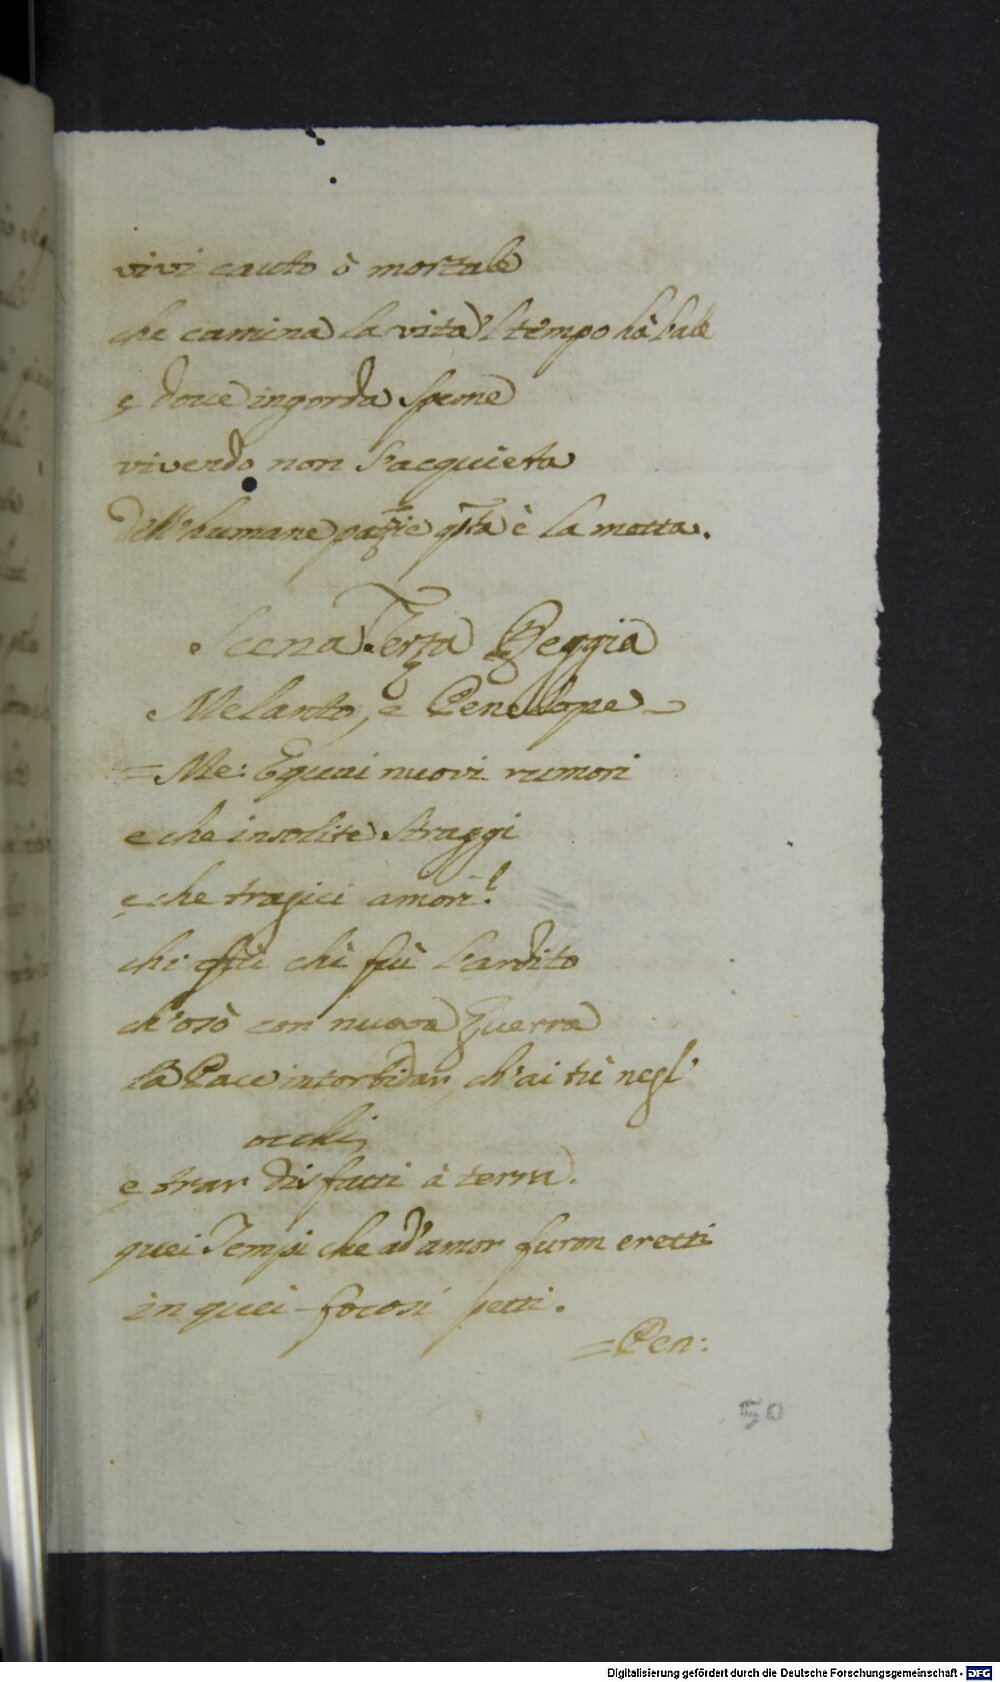 vivi cauto ò mortale
che camina la vita 'l tempo hà l'ale
e doue ingorda speme
vivendo non s'acquieta
dell'humane pazzie qsta è la metta.
Scena Terza Reggia
Melanto, e Penelope
=Me: E quai nuovi rumori
e che insolite straggi
e che tragici amori?
chi fù chi fù l'ardito
ch'osò con nuova Guerra
la Pace intorbidar, ch'ai tù negl'
occhi,
e trar disfatti à terra.
quei Tempi che ad'amor furon eretti
in quei focosi petti.
=Pen:
50
Digitalisierung gefördert durch die Deutsche Forschungsgemeinschaft - DFG